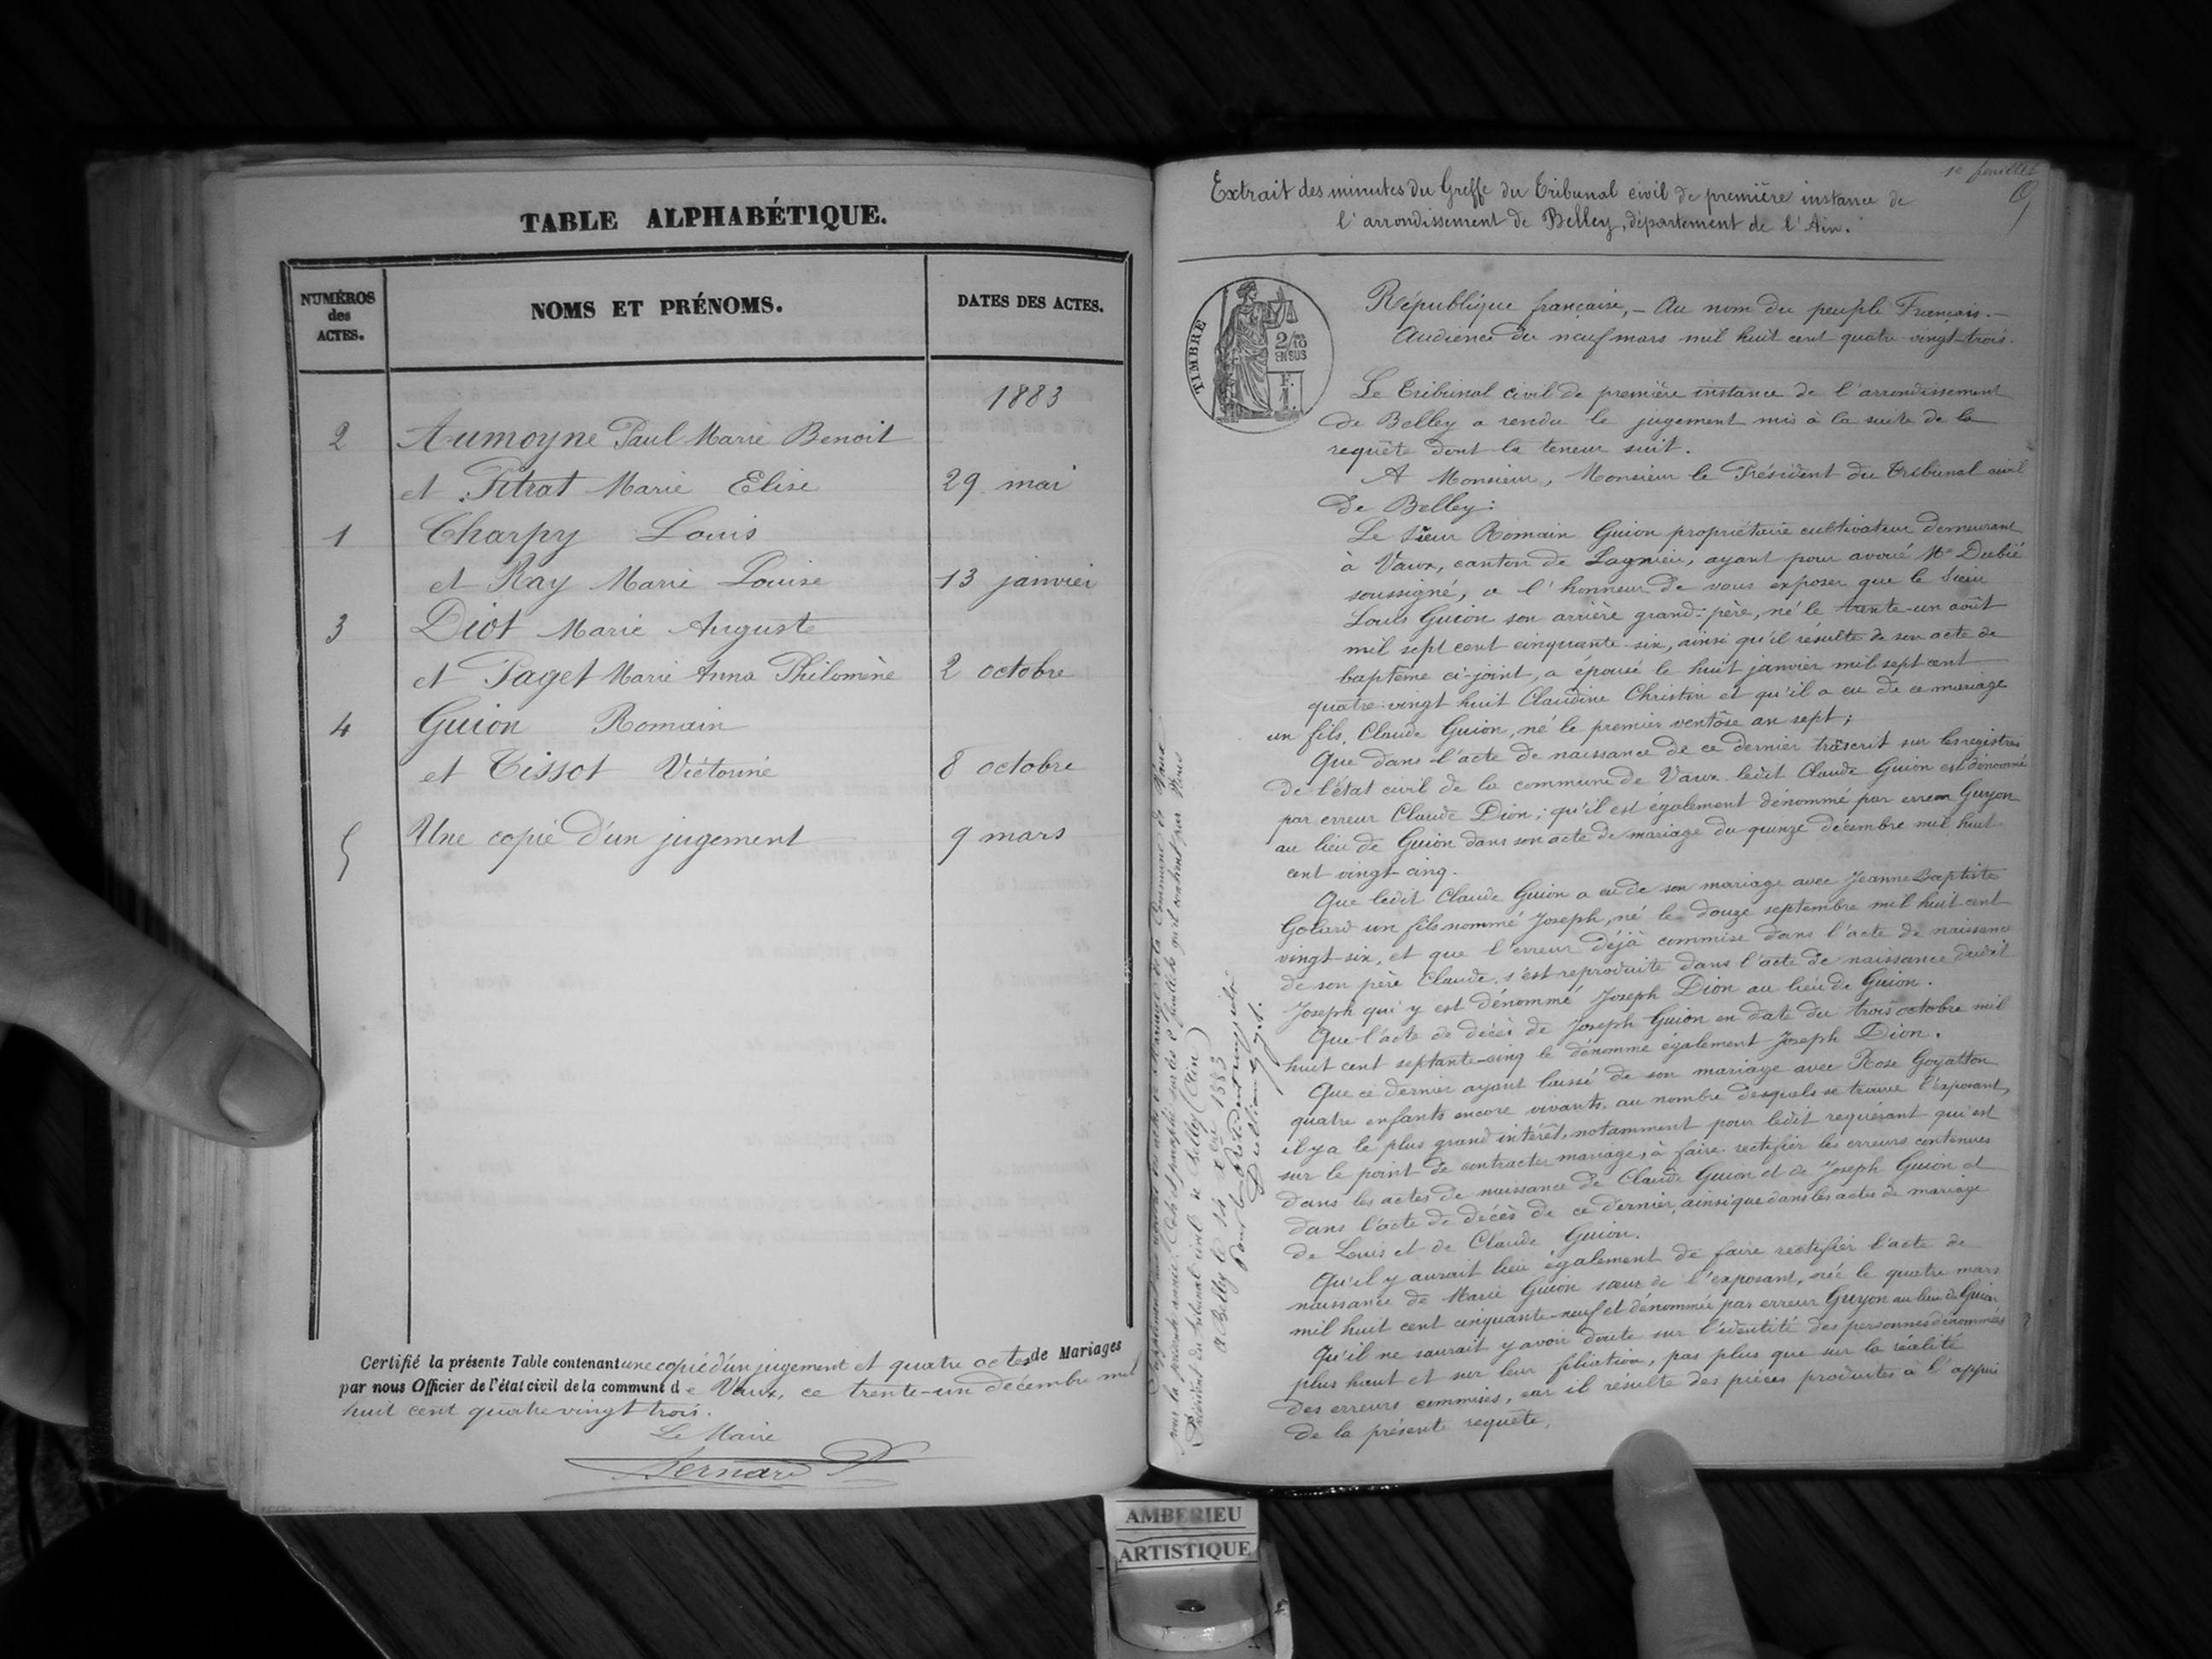 TABLE ALPHABÉTIQUE.
NUMÉROS des ACTES.
NOMS ET PRÉNOMS.
DATES DES ACTES.
1883
2 Aumoyne Paul Marie Benoit
et Pitrat Marie Elise 29 mai
1 Charpy Louis
et Ray Marie Louise 13 janvier
3 Diot Marie Auguste
et Paget Marie Anna Philomène 2 octobre
4 Guion Romain
et Tissot Victorine 8 octobre
5 Une copie d'un jugement 9 mars
Certifié la présente Table contenant une copie d'un jugement et quatre actes de Mariages
par nous Officier de l'état civil de la commune de Vaux, ce trente-un décembre mil
huit cent quatre vingt trois.
Le Maire
Bernard
1e feuillet
Extrait des minutes du Greffe du Tribunal civil de première instance de
l'arrondissement de Belley, département de l'Ain.
TIMBRE
2/10 EN SUS
F. 1.
République française, - Au nom du peuple Français. -
Audience du neuf mars mil huit cent quatre-vingt-trois.
Le Tribunal civil de première instance de l'arrondissement
de Belley a rendu le jugement mis à la suite de la
requête dont la teneur suit.
A Monsieur, Monsieur le Président du Tribunal civil
de Belley:
Le Sieur Romain Guion propriétaire cultivateur demeurant
à Vaux, canton de Lagnieu, ayant pour avoué Me Dubié
soussigné, a l'honneur de vous exposer que le Sieur
Louis Guion son arrière grand-père, né le trente-un août
mil sept cent cinquante-six, ainsi qu'il résulte de son acte de
baptême ci-joint, a épousé le huit janvier mil sept cent
quatre-vingt huit Claudine Christin et qu'il a eu de ce mariage
un fils, Claude Guion, né le premier ventôse an sept;
Que dans l'acte de naissance de ce dernier trāscrit sur les registres
de l'état civil de la commune de Vaux ledit Claude Guion est dénommé
par erreur Claude Dion; qu'il est également dénommé par erreur Guyon
au lieu de Guion dans son acte de mariage du quinze décembre mil huit
cent vingt-cinq.
Que ledit Claude Guion a eu de son mariage avec Jeanne Baptiste
Golard un fils nommé Joseph, né le douze septembre mil huit cent
vingt-six, et que l'erreur déjà commise dans l'acte de naissance
de son père Claude s'est reproduite dans l'acte de naissance dudit
Joseph qui y est dénommé Joseph Dion au lieu de Guion.
Que l'acte de décès de Joseph Guion en date du trois octobre mil
huit cent septante-cinq le dénomme également Joseph Dion.
Que ce dernier ayant laissé de son mariage avec Rose Goyatton
quatre enfants encore vivants, au nombre desquels se trouve l'exposant,
il y a le plus grand intérêt, notamment pour ledit requérant qui est
sur le point de contracter mariage, à faire rectifier les erreurs contenues
dans les actes de naissance de Claude Guion et de Joseph Guion et
dans l'acte de décès de ce dernier, ainsi que dans les actes de mariage
de Louis et de Claude Guion.
Qu'il y aurait lieu également de faire rectifier l'acte de
naissance de Marie Guion sœur de l'exposant, née le quatre mars
mil huit cent cinquante-neuf et dénommée par erreur Guyon au lieu de Guion
Qu'il ne saurait y avoir doute sur l'identité des personnes dénommées
plus haut et sur leur filiation, pas plus que sur la réalité
des erreurs commises, car il résulte des pièces produites à l'appui
de la présente requête,
de la Commune de Vaux
pour la présente année Côté et paraphé sur les feuillets qu'il contient par Nous
Président du Tribunal civil de Belley (Ain)
A Belley le Xbre 1883
Pour le Président
AMBERIEU
ARTISTIQUE